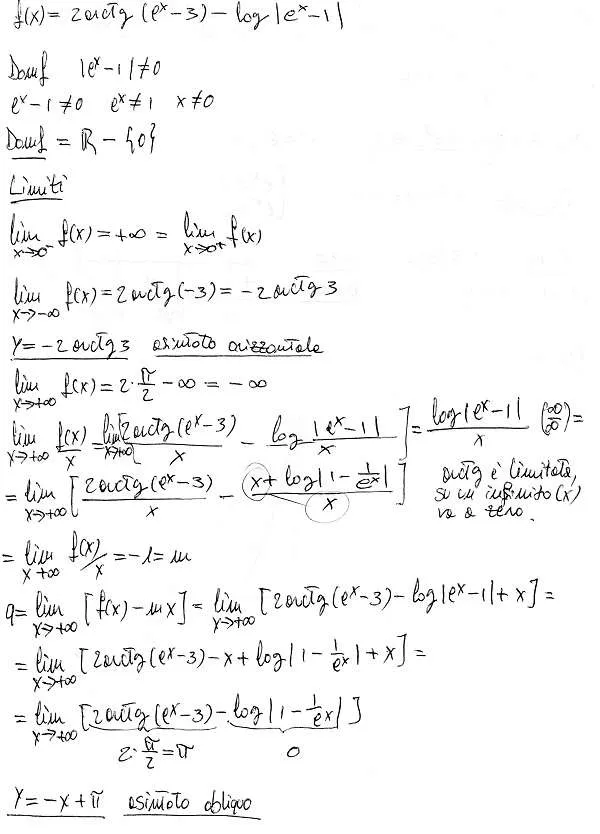 f(x) = 2arctg (eˣ-3) - log |eˣ-1|
Domf |eˣ-1| ≠ 0
eˣ-1 ≠ 0 eˣ ≠ 1 x ≠ 0
Domf = ℝ - {0}
Limiti
lim x→0⁻ f(x) = +∞ = lim x→0⁺ f(x)
lim x→-∞ f(x) = 2arctg(-3) = -2arctg 3
y = -2arctg 3 asintoto orizzontale
lim x→+∞ f(x) = 2·π/2 - ∞ = -∞
lim x→+∞ f(x)/x = lim x→+∞ [2arctg(eˣ-3)/x - log|eˣ-1|/x] = log|eˣ-1|/x (∞/∞) =
= lim x→+∞ [2arctg(eˣ-3)/x - (x + log|1 - 1/eˣ|)/x] arctg è limitata,
su un infinito (x)
va a zero.
= lim x→+∞ f(x)/x = -1 = m
q = lim x→+∞ [f(x) - mx] = lim x→+∞ [2arctg(eˣ-3) - log|eˣ-1| + x] =
= lim x→+∞ [2arctg(eˣ-3) - x + log|1 - 1/eˣ| + x] =
= lim x→+∞ [2arctg(eˣ-3) - log|1 - 1/eˣ|]
2·π/2 = π 0
y = -x + π asintoto obliquo